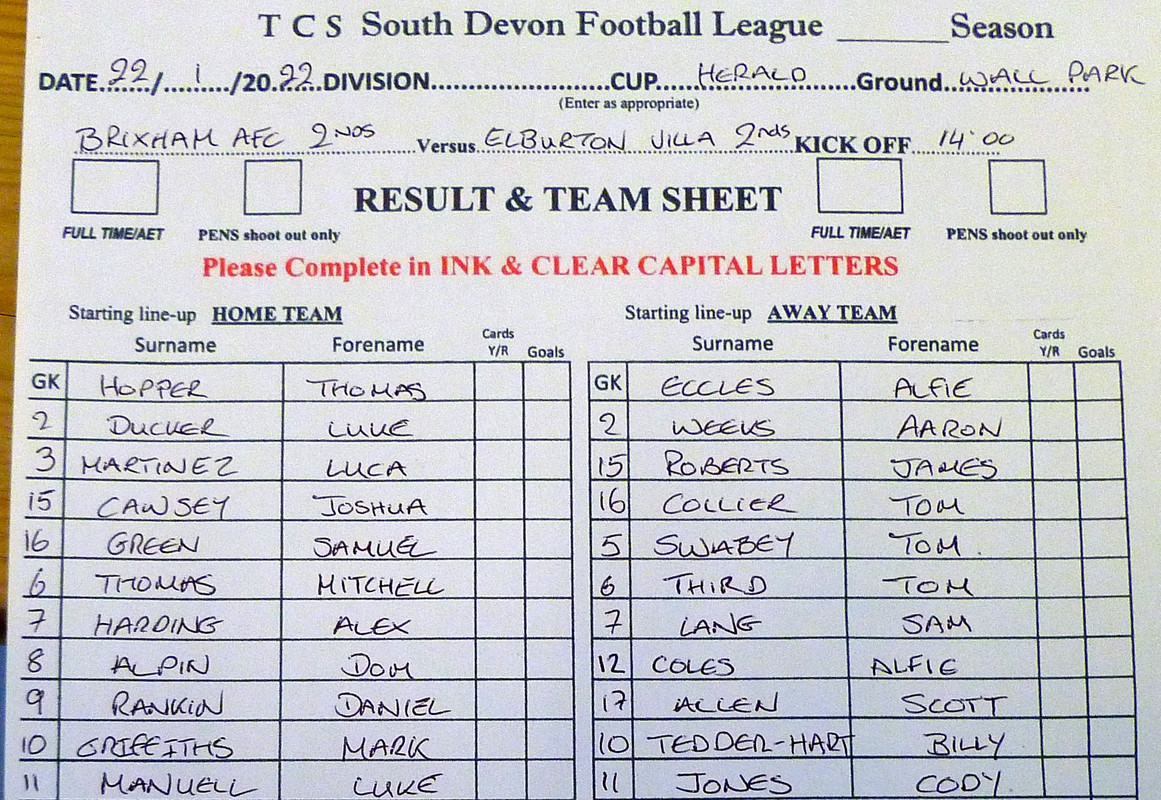 T C S South Devon Football League ________ Season
DATE 22/ 1 /20 22 DIVISION CUP HERALD Ground WALL PARK
(Enter as appropriate)
BRIXHAM AFC 2NDS Versus ELBURTON VILLA 2nds KICK OFF 14:00
RESULT & TEAM SHEET
FULL TIME/AET PENS shoot out only FULL TIME/AET PENS shoot out only
Please Complete in INK & CLEAR CAPITAL LETTERS
Starting line-up HOME TEAM Starting line-up AWAY TEAM
Surname Forename Cards Y/R Goals Surname Forename Cards Y/R Goals
GK HOPPER THOMAS GK ECCLES ALFIE
2 DUCKER LUKE 2 WEEKS AARON
3 MARTINEZ LUCA 15 ROBERTS JAMES
15 CAWSEY JOSHUA 16 COLLIER TOM
16 GREEN SAMUEL 5 SWABEY TOM
6 THOMAS MITCHELL 6 THIRD TOM
7 HARDING ALEX 7 LANG SAM
8 ALPIN DOM 12 COLES ALFIE
9 RANKIN DANIEL 17 ALLEN SCOTT
10 GRIFFITHS MARK 10 TEDDER-HART BILLY
11 MANUELL LUKE 11 JONES CODY